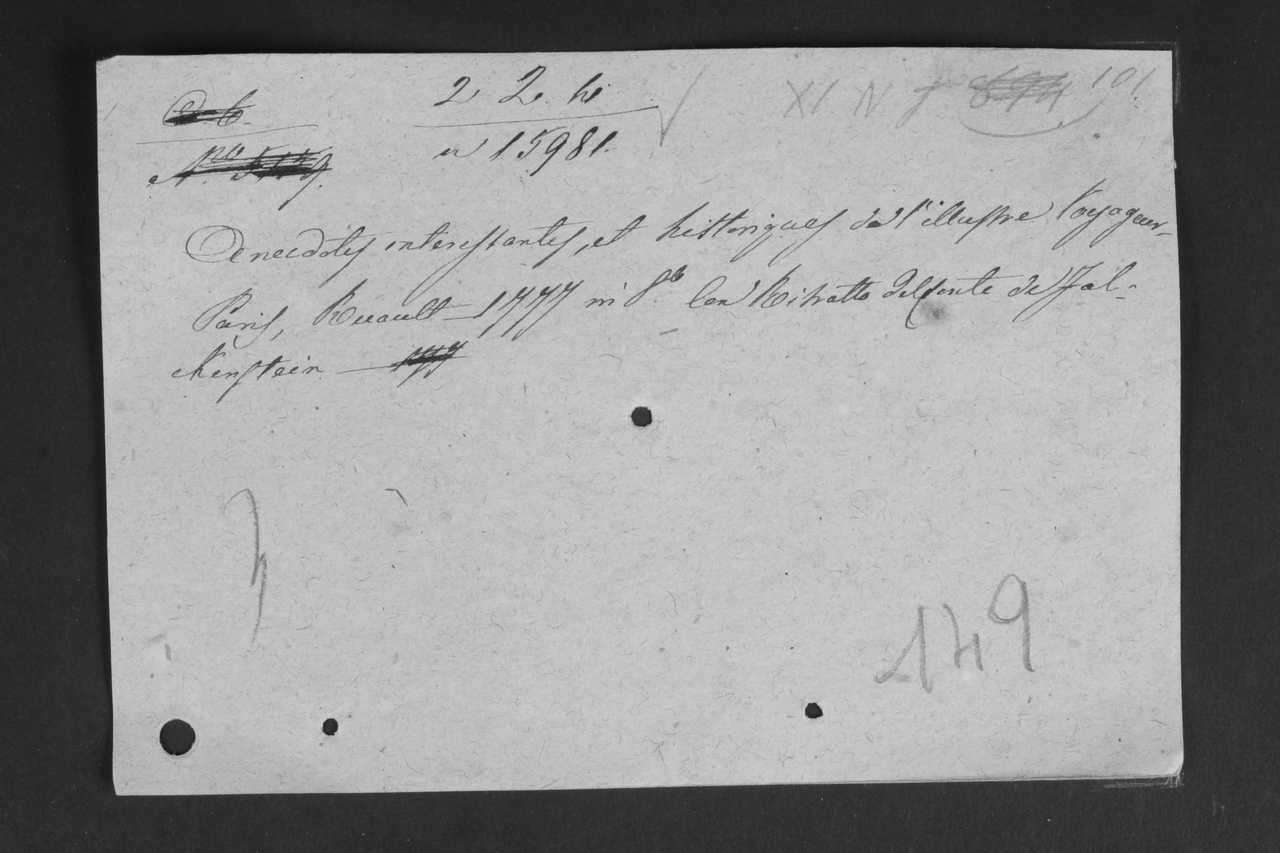 2 2. h
XI N J 101
n 15981.
Anecdotes interessantes, et historiques de l'illustre Voyageur.
Paris, Ruault 1777 in 8.º Con Ritratto del Conte de Fal-
ckenstein
149